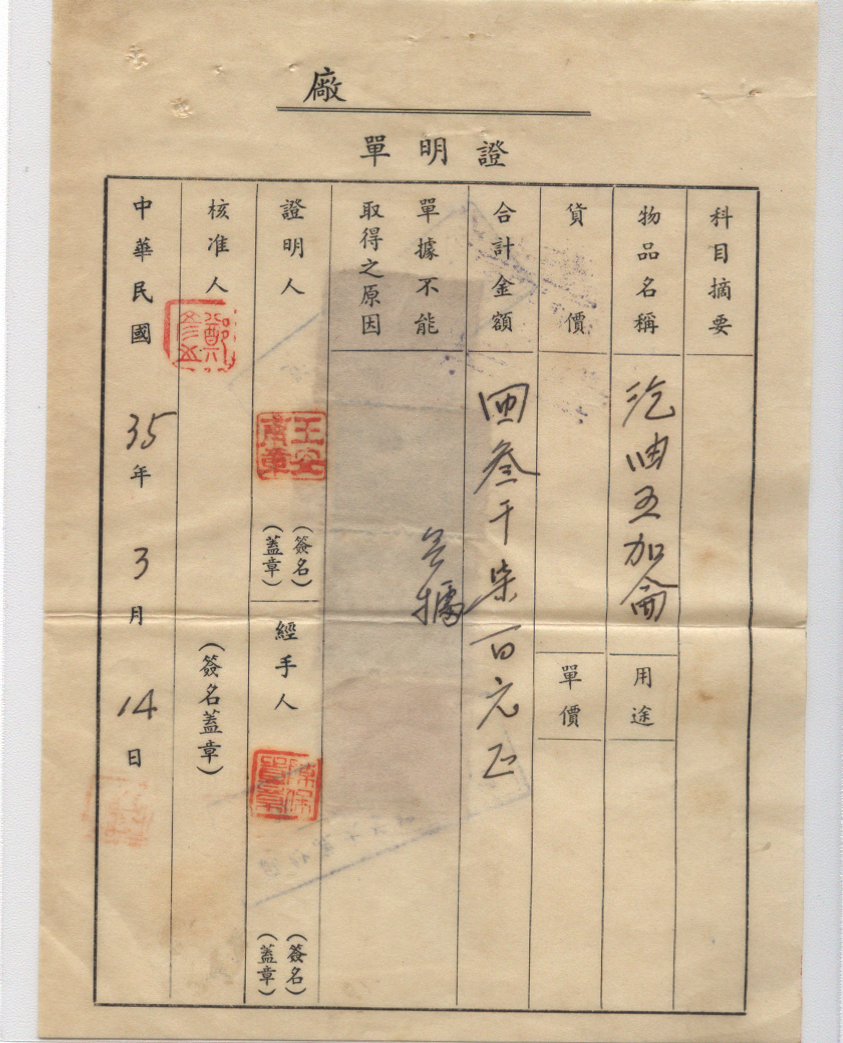 廠
單明證
科目摘要
物品名稱
汽油五加侖
用途
貨價
單價
合計金額
叁千柒百元正
單據不能
取得之原因
無據
證明人
王安
章
(簽名
蓋章)
經手人
陳
章
(簽名
蓋章)
核准人
鄭
(簽名蓋章)
中華民國35年3月14日